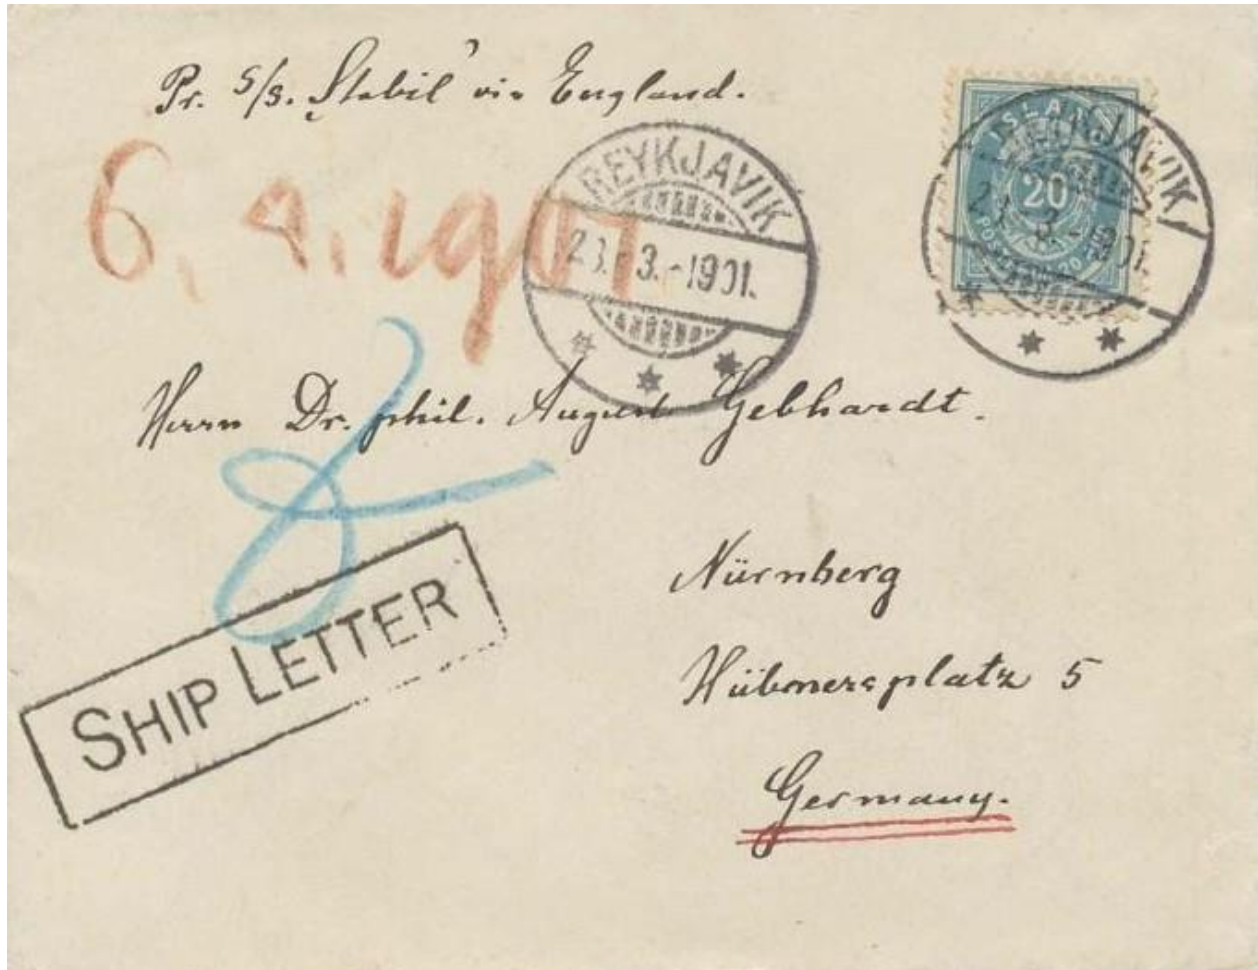 Pr. S/S. Stabil via England.
REYKJAVIK
23.-3.-1901.
ISLAND
20
REYKJAVIK
3.-1901.
Herrn Dr. phil. August Gebhardt.
Nürnberg
Hübnersplatz 5
Germany.
SHIP LETTER